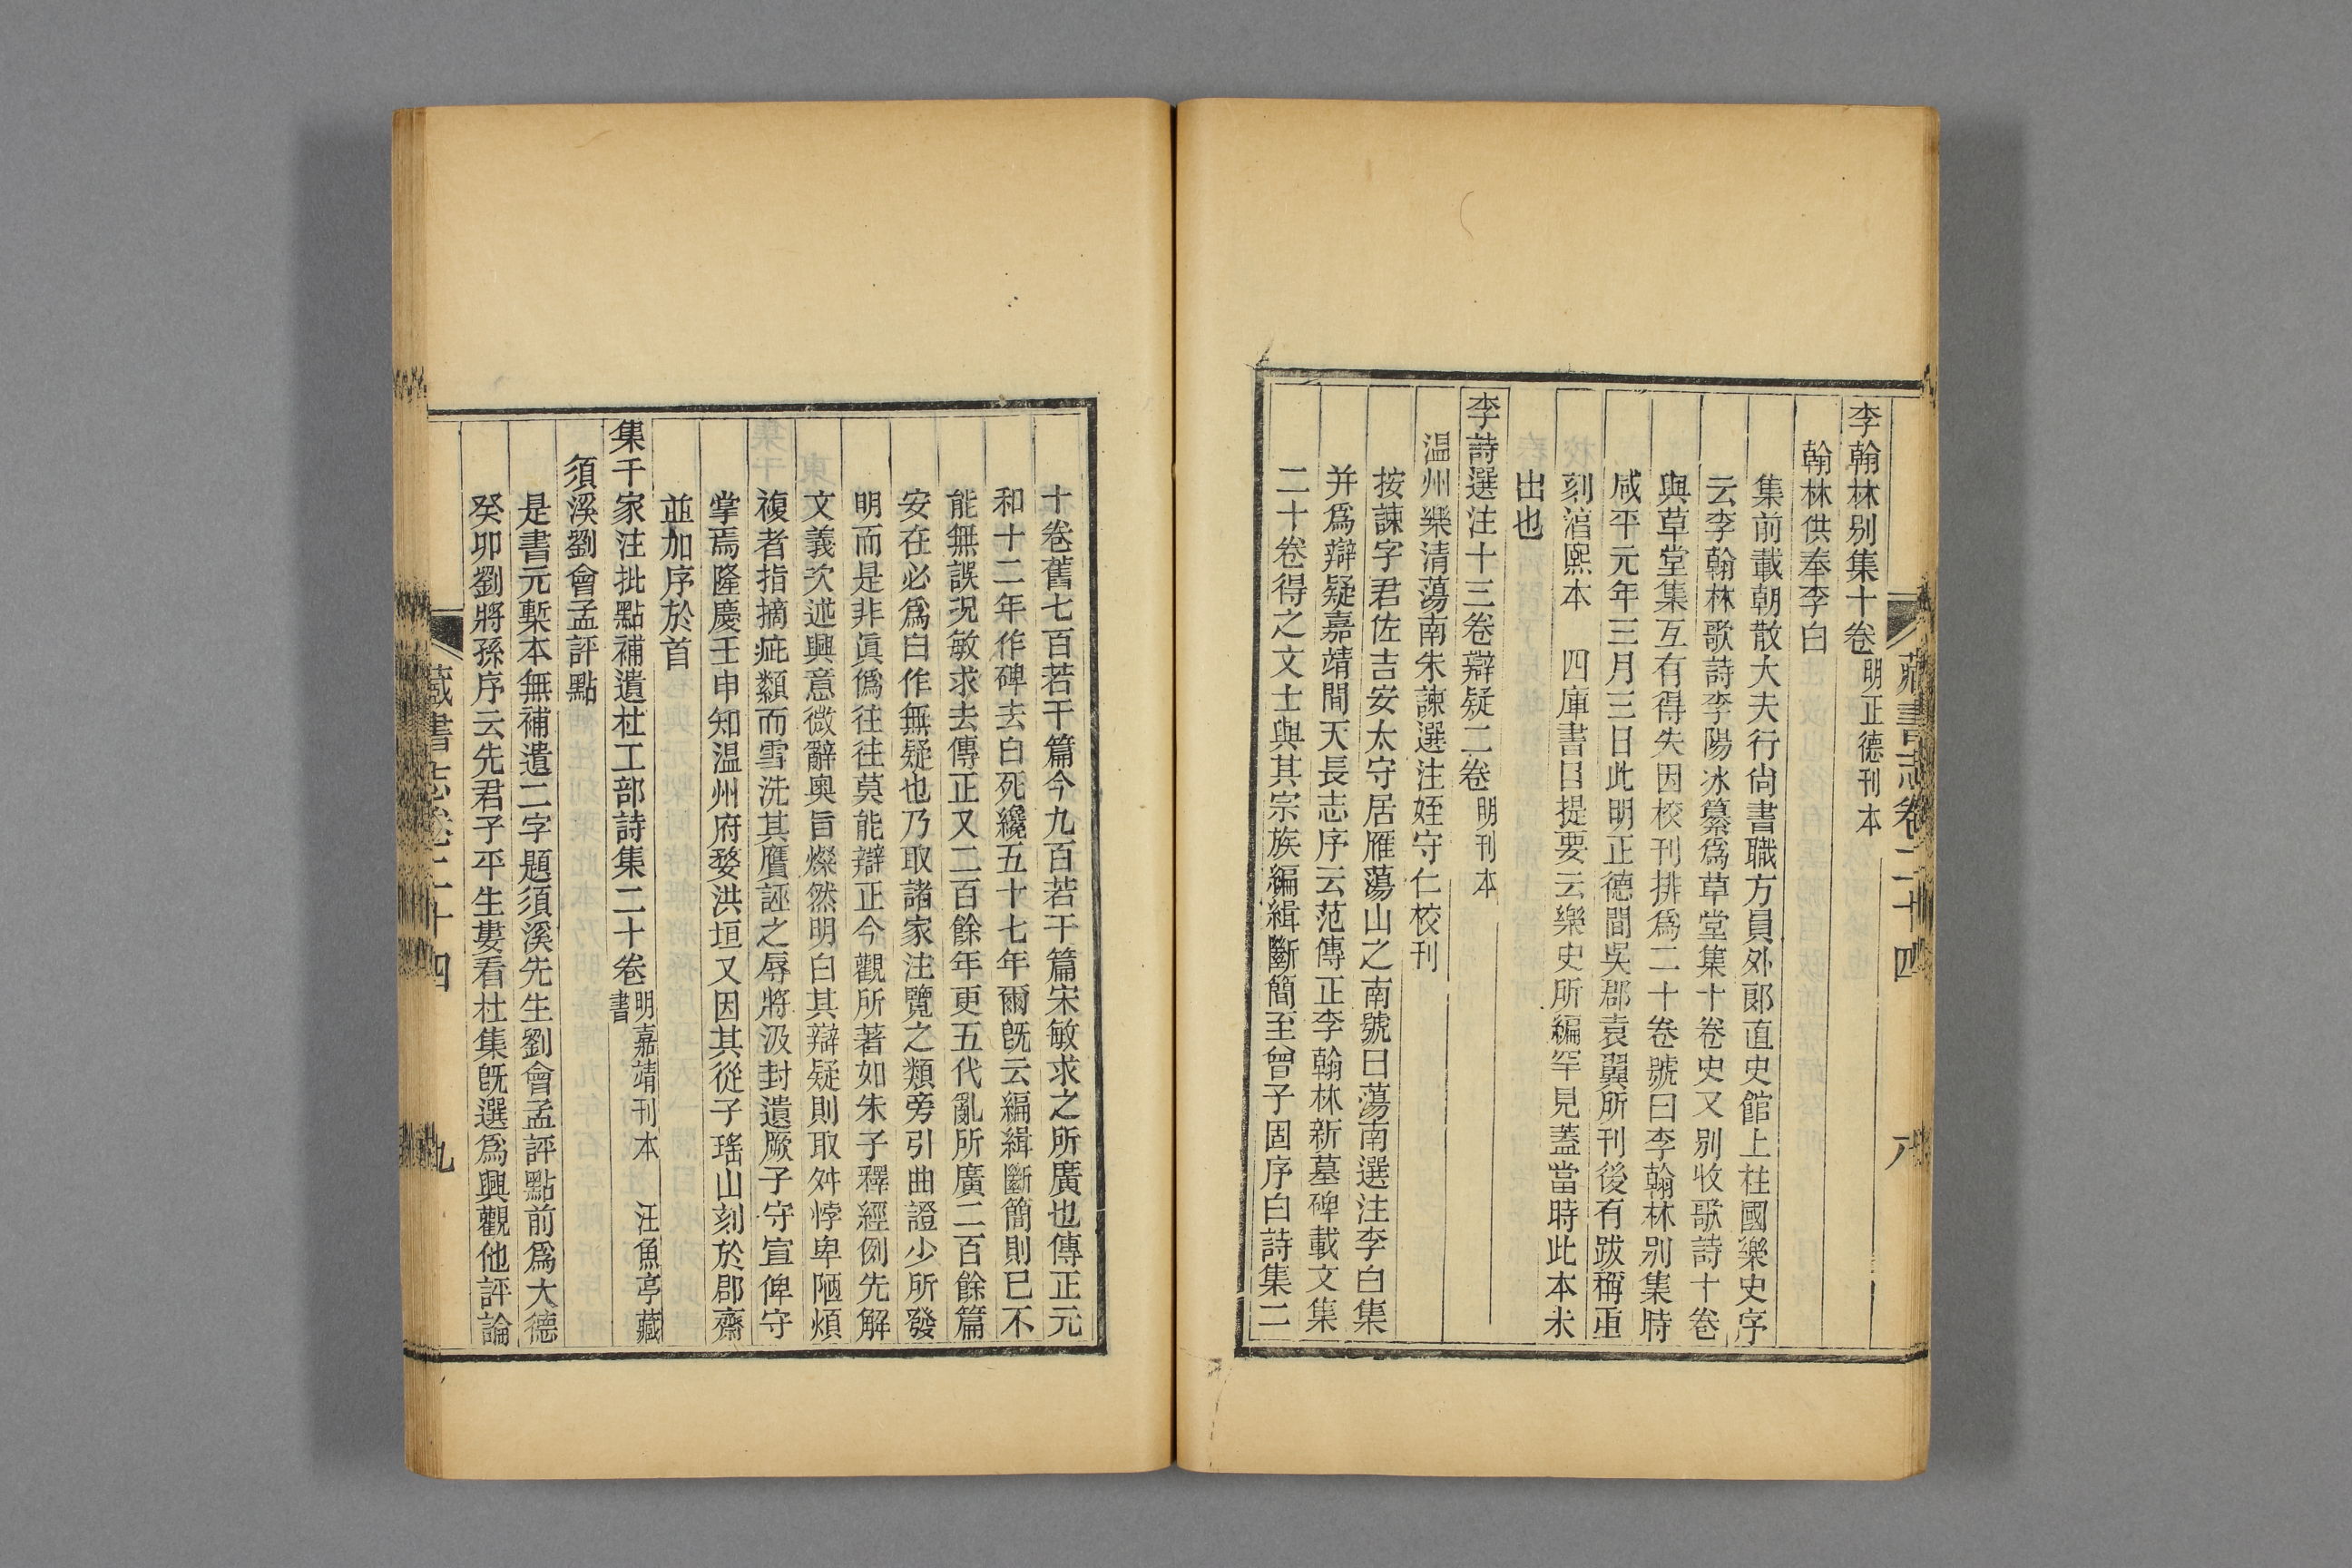 藏書志卷二十四 八
李翰林别集十卷 明正德刊本
翰林供奉李白
集前載朝散大夫行尙書職方員外郎直史館上柱國樂史序
云李翰林歌詩李陽冰纂爲草堂集十卷史又别收歌詩十卷
與草堂集互有得失因校刊排爲二十卷號曰李翰林别集時
咸平元年三月三日此明正德間吳郡袁翼所刊後有跋稱重
刻淳熙本 四庫書目提要云樂史所編罕見蓋當時此本未
出也
李詩選注十三卷辯疑二卷 明刊本
温州樂清蕩南朱諫選注姪守仁校刊
按諫字君佐吉安太守居雁蕩山之南號曰蕩南選注李白集
并爲辯疑嘉靖間天長志序云范傳正李翰林新墓碑載文集
二十卷得之文士與其宗族編緝斷簡至曾子固序白詩集二
十卷舊七百若干篇今九百若干篇宋敏求之所廣也傳正元
和十二年作碑去白死纔五十七年爾旣云編緝斷簡則已不
能無誤況敏求去傳正又二百餘年更五代亂所廣二百餘篇
安在必爲白作無疑也乃取諸家注覽之類旁引曲證少所發
明而是非眞僞往往莫能辯正今觀所著如朱子釋經例先解
文義次述興意微辭奧旨燦然明白其辯疑則取舛悖卑陋煩
複者指摘疵纇而雪洗其贋誣之辱將汲封遺厥子守宣俾守
掌焉隆慶壬申知温州府婺洪垣又因其從子瑤山刻於郡齋
並加序於首
集千家注批點補遺杜工部詩集二十卷 明嘉靖刊本 汪魚亭藏書
須溪劉會孟評點
是書元槧本無補遺二字題須溪先生劉會孟評點前爲大德
癸卯劉將孫序云先君子平生婁看杜集旣選爲興觀他評論
藏書志卷二十四 九